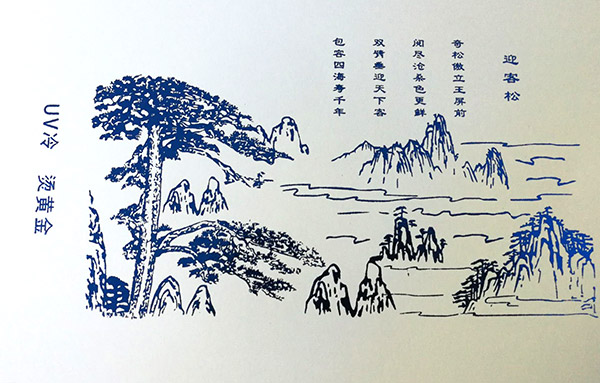 迎客松
奇松傲立玉屏前
阅尽沧桑色更鲜
双臂垂迎天下客
包容四海寿千年
UV冷 烫黄金